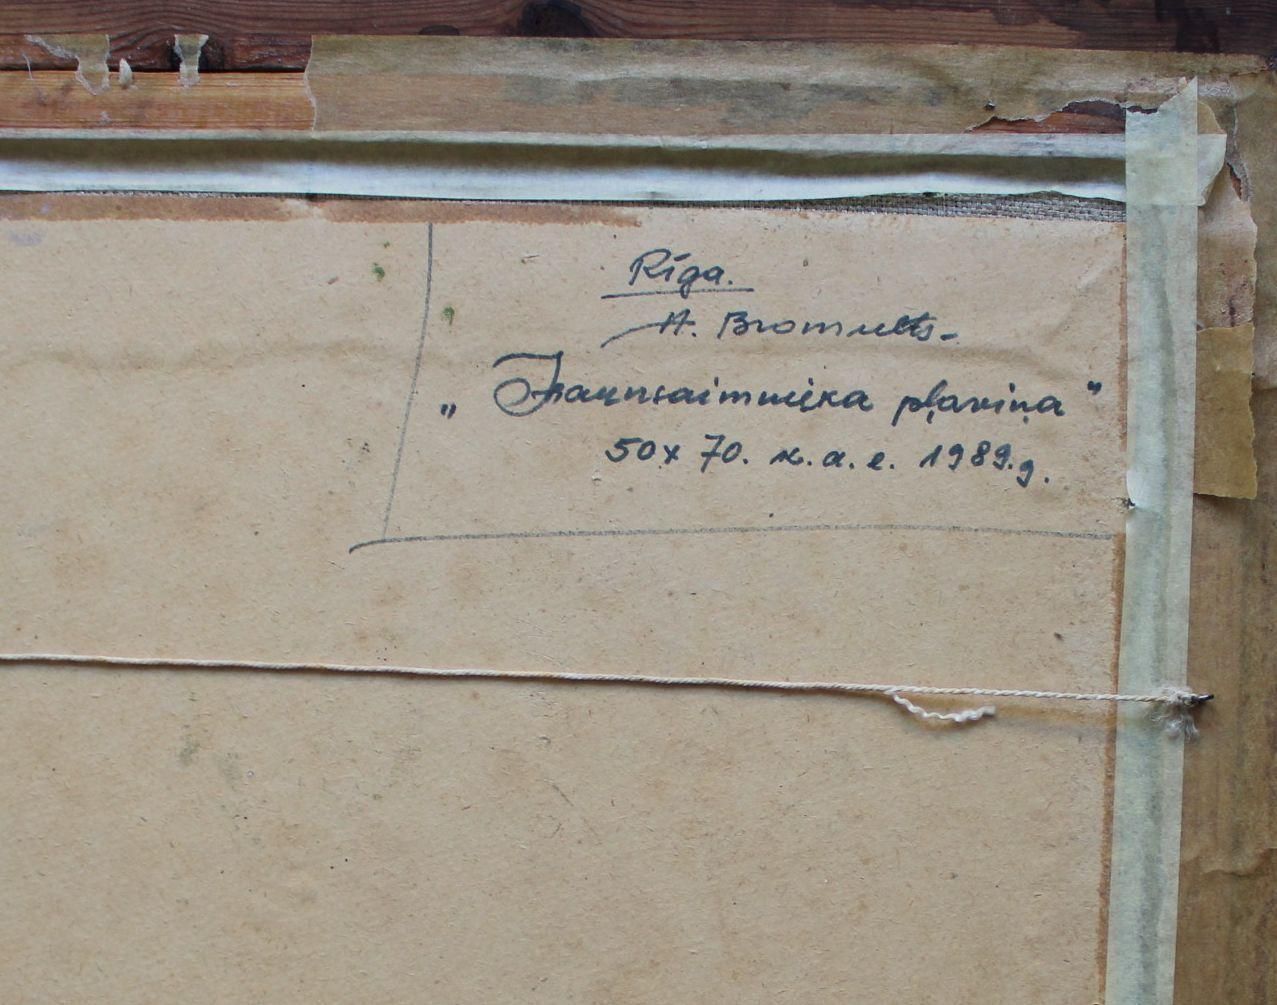 Rīga.
A. Bromults.
„Jaunsaimnieka pļaviņa"
50x70. k.a.e. 1989.g.